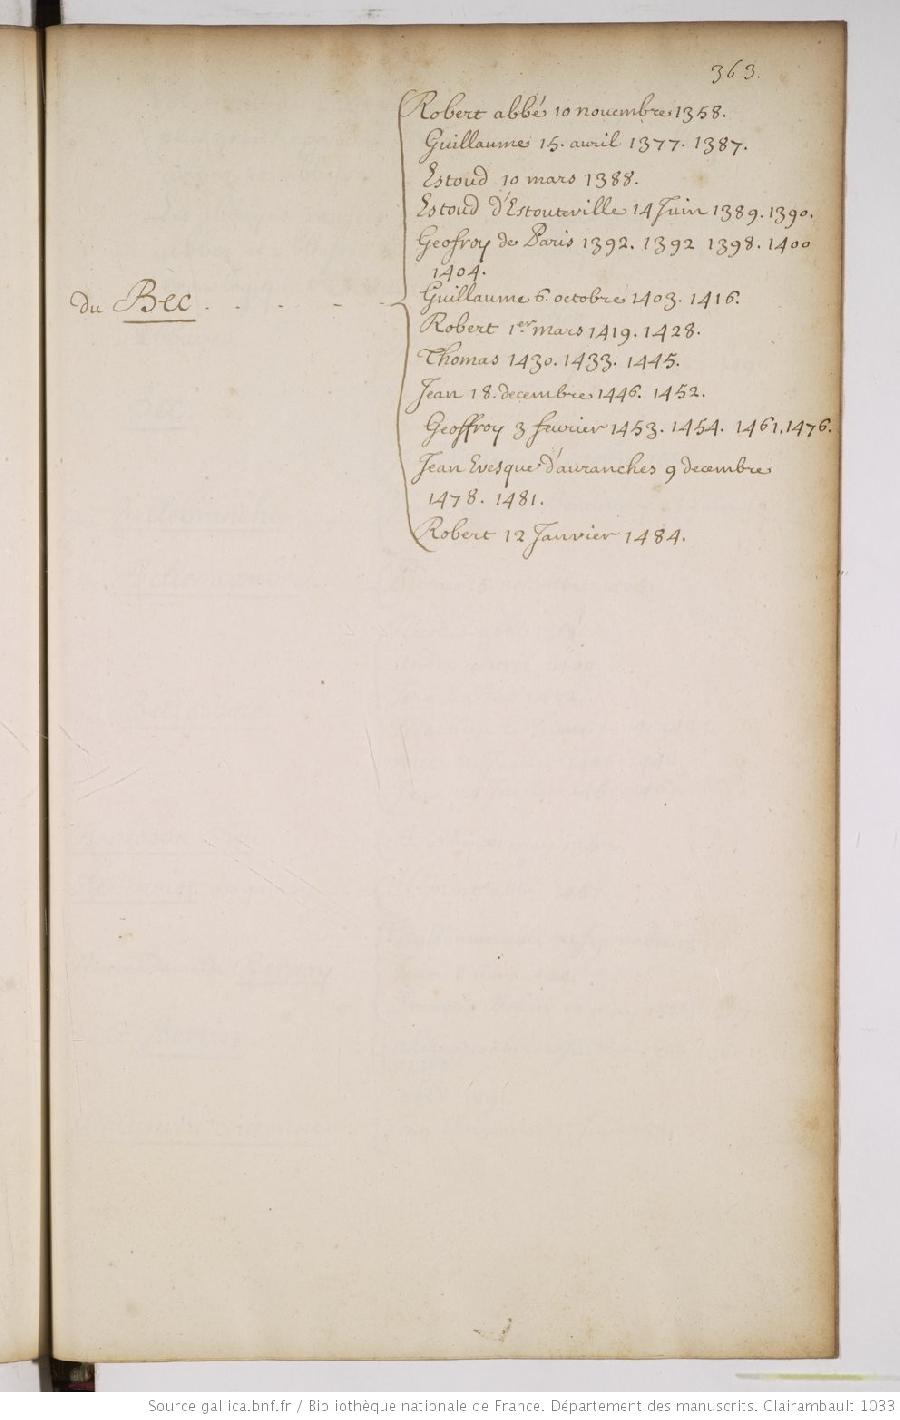 363.
Robert abbé 10 novembre 1358.
Guillaume 15. avril 1377. 1387.
Estoud 10 mars 1388.
Estoud d'Estouteville 14 Juin 1389. 1390.
Geofroy de Paris 1392. 1392 1398. 1400
1404.
du Bec
Guillaume 6. octobre 1403. 1416.
Robert 1er mars 1419. 1428.
Thomas 1430. 1433. 1445.
Jean 18. decembre 1446. 1452.
Geoffroy 3 fevrier 1453. 1454. 1461. 1476.
Jean Evesque d'auranches 9 decembre
1478. 1481.
Robert 12 Janvier 1484.
Source gallica.bnf.fr / Bibliothèque nationale de France. Département des manuscrits. Clairambault 1033